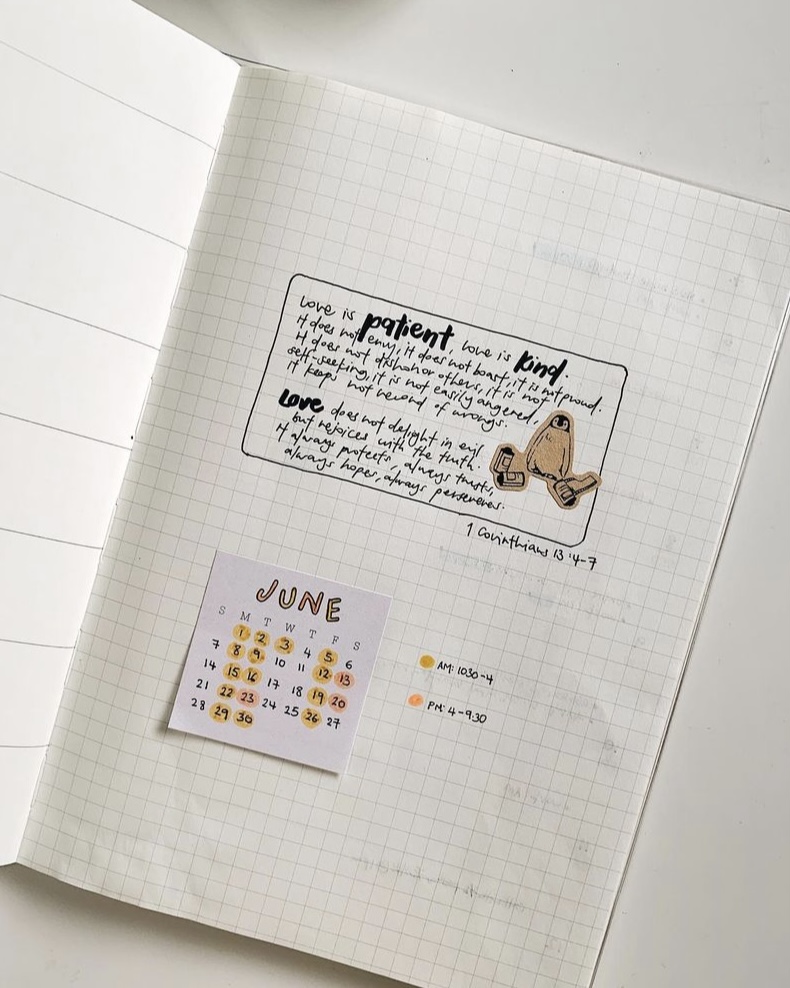 Love is patient, love is kind.
It does not envy, it does not boast, it is not proud.
It does not dishonor others, it is not
self-seeking, it is not easily angered,
it keeps not record of wrongs.
Love does not delight in evil
but rejoices with the truth.
It always protects, always trusts,
always hopes, always perseveres.
1 Corinthians 13:4-7
JUNE
S M T W T F S
1 2 3 4 5 6
7 8 9 10 11 12 13
14 15 16 17 18 19 20
21 22 23 24 25 26 27
28 29 30
AM: 1030-4
PM: 4-9:30